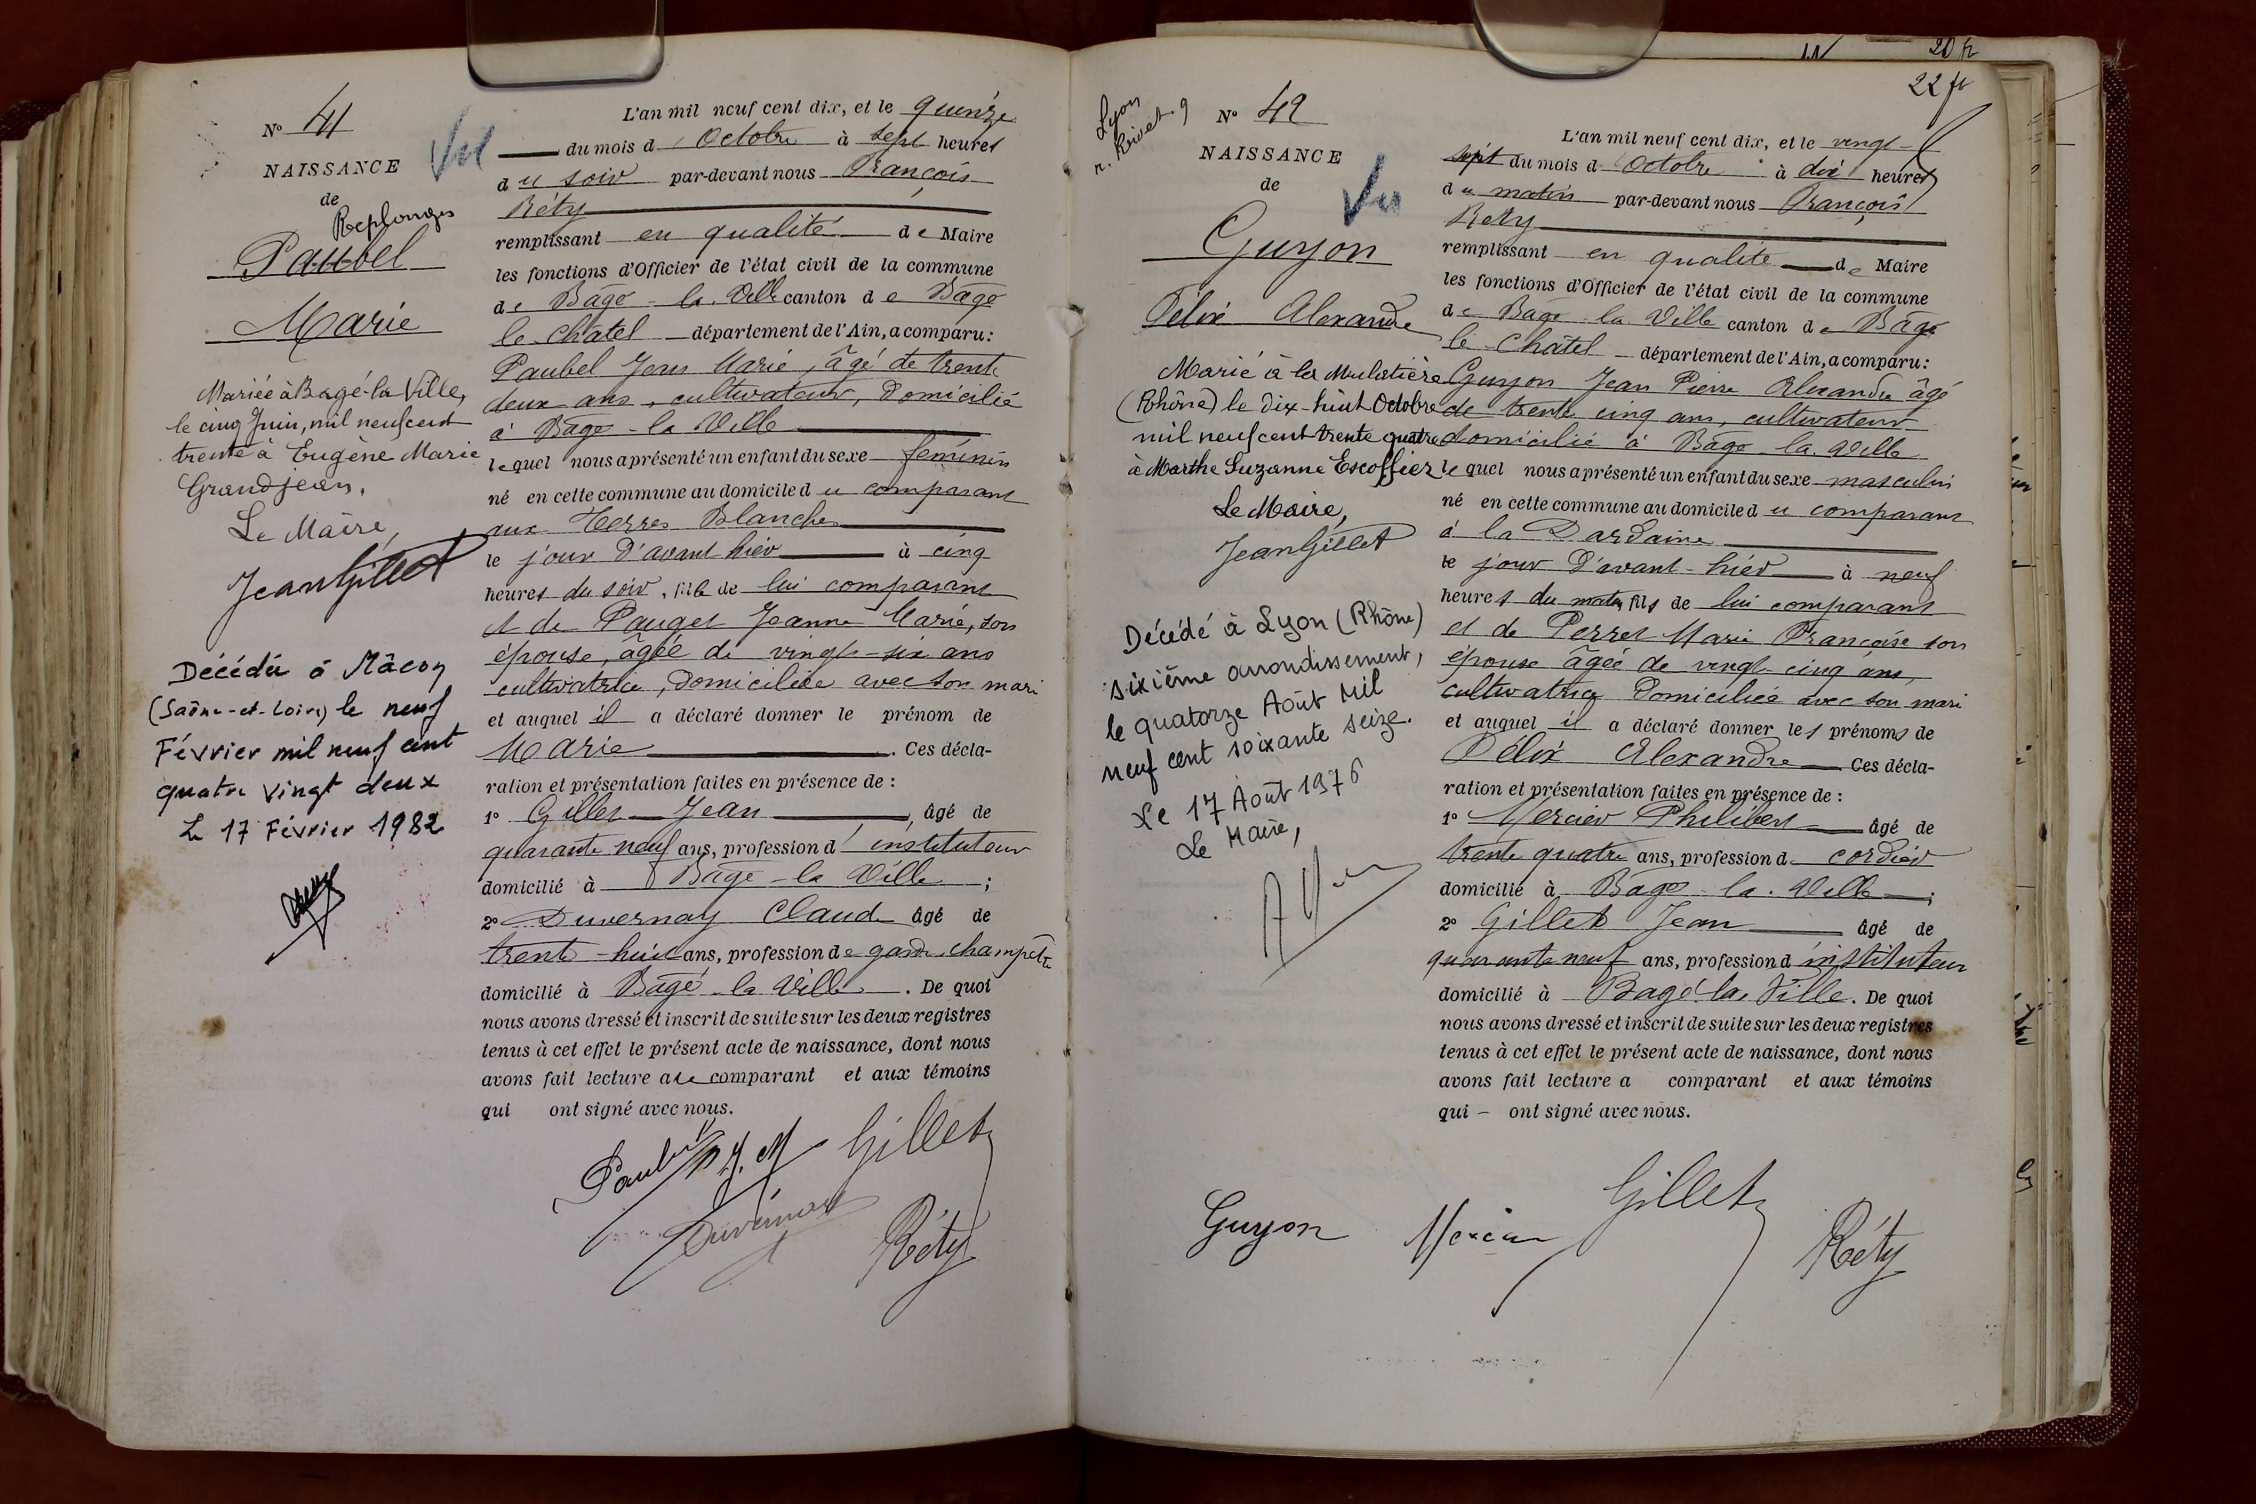 N° 41
NAISSANCE
de
Replonges
Paubel
Marie
Mariée à Bagé-la-Ville,
le cinq Juin, mil neuf cent
trente à Eugène Marie
Grandjean.
Le Maire,
Jean Gillet
Décédée à Mâcon
(Saône-et-Loire) le neuf
Février mil neuf cent
quatre vingt deux
Le 17 Février 1982
Vu
L'an mil neuf cent dix, et le quinze
du mois d'Octobre à sept heures
du soir par-devant nous François
Réty
remplissant en qualité de Maire
les fonctions d'Officier de l'état civil de la commune
de Bâgé-la-Ville canton de Bâgé
le Châtel département de l'Ain, a comparu:
Paubel Jean Marie, âgé de trente
deux ans, cultivateur, domicilié
à Bâgé-la-Ville
lequel nous a présenté un enfant du sexe féminin
né en cette commune au domicile du comparant
aux Terres Blanches
le jour d'avant hier à cinq
heures du soir, fille de lui comparant
et de Pauget Jeanne Marie, son
épouse, âgée de vingt-six ans
cultivatrice, domiciliée avec son mari
et auquel il a déclaré donner le prénom de
Marie. Ces décla-
ration et présentation faites en présence de :
1° Gillet Jean, âgé de
quarante neuf ans, profession d'instituteur
domicilié à Bâgé-la Ville ;
2° Duvernay Claude âgé de
trente-huit ans, profession de garde champêtre
domicilié à Bâgé-la Ville. De quoi
nous avons dressé et inscrit de suite sur les deux registres
tenus à cet effet le présent acte de naissance, dont nous
avons fait lecture au comparant et aux témoins
qui ont signé avec nous.
Paubel J. M Gillet
Duvernay Réty
20 fr
22 fr
Lyon
r. Rivet. 9
N° 42
NAISSANCE
de
Guyon
Félix Alexandre
Marié à la Mulatière
(Rhône) le dix-huit Octobre
mil neuf cent trente quatre
à Marthe Suzanne Escoffier
Le Maire,
Jean Gillet
Décédé à Lyon (Rhône)
sixième arrondissement,
le quatorze Août Mil
neuf cent soixante seize.
Le 17 Août 1976
Le Maire,
Vu
L'an mil neuf cent dix, et le vingt-
sept du mois d'Octobre à dix heures
du matin par-devant nous François
Réty
remplissant en qualité de Maire
les fonctions d'Officier de l'état civil de la commune
de Bâgé-la Ville canton de Bâgé
le Châtel département de l'Ain, a comparu:
Guyon Jean Pierre Alexandre âgé
de trente cinq ans, cultivateur
domicilié à Bâgé-la-Ville
lequel nous a présenté un enfant du sexe masculin
né en cette commune au domicile du comparant
à la Dardaine
le jour d'avant-hier à neuf
heures du matin fils de lui comparant
et de Perret Marie Françoise son
épouse âgée de vingt-cinq ans,
cultivatrice domiciliée avec son mari
et auquel il a déclaré donner les prénoms de
Félix Alexandre Ces décla-
ration et présentation faites en présence de :
1° Mercier Philibert âgé de
trente quatre ans, profession de cordier
domicilié à Bâgé-la-Ville ;
2° Gillet Jean âgé de
quarante neuf ans, profession d'instituteur
domicilié à Bagé-la-Ville. De quoi
nous avons dressé et inscrit de suite sur les deux registres
tenus à cet effet le présent acte de naissance, dont nous
avons fait lecture a comparant et aux témoins
qui – ont signé avec nous.
Guyon Mercier Gillet Réty